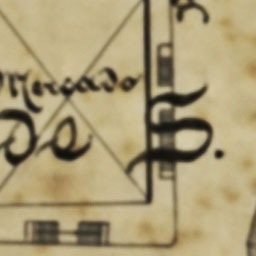 Mercado
de S.